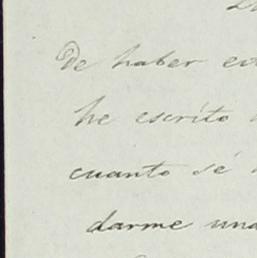 De haber
he escrito
cuanto sé
darme una